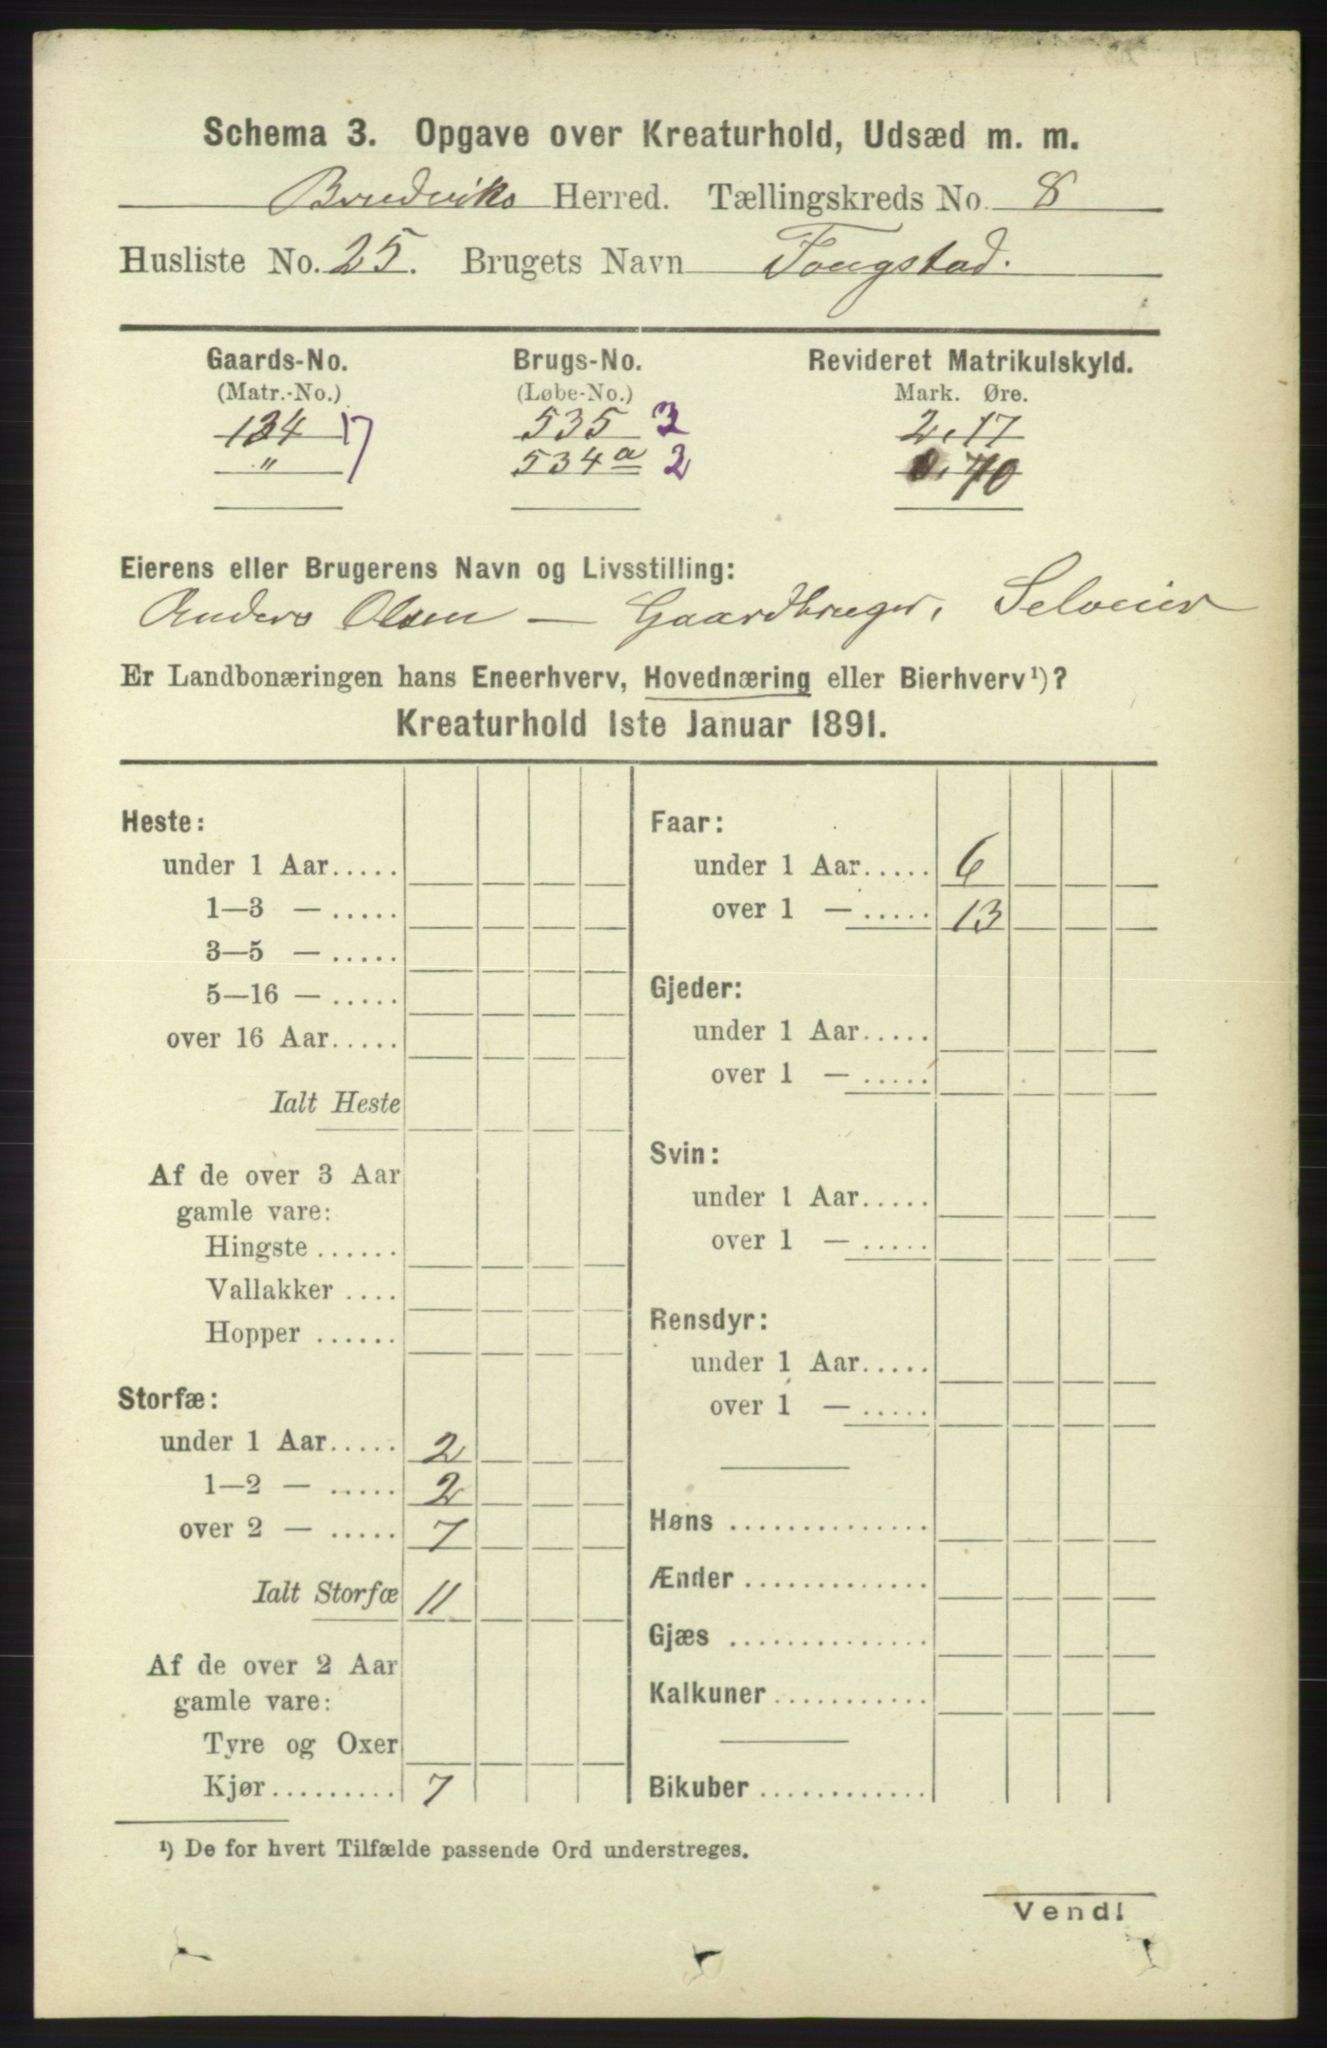 Schema 3. Opgave over Kreaturhold, Udsæd m. m.
Bredviks Herred. Tællingskreds No. 8
Husliste No. 25. Brugets Navn Tougstad.
Gaards-No. Brugs-No. Revideret Matrikulskyld.
(Matr.-No.) (Løbe-No.) Mark. Øre.
134 17 535 3 2,17
" 17 534a 2 0,70
Eierens eller Brugerens Navn og Livsstilling:
Anders Olsen — Gaardbruger, Selveier
Er Landbonæringen hans Eneerhverv, Hovednæring eller Bierhverv¹)?
Kreaturhold 1ste Januar 1891.
Heste:
under 1 Aar.....
1—3 — .....
3—5 — .....
5—16 — .....
over 16 Aar.....
Ialt Heste
Af de over 3 Aar
gamle vare:
Hingste ......
Vallakker ....
Hopper ......
Storfæ:
under 1 Aar..... 2
1—2 — ..... 2
over 2 — ..... 7
Ialt Storfæ 11
Af de over 2 Aar
gamle vare:
Tyre og Oxer
Kjør......... 7
Faar:
under 1 Aar..... 6
over 1 — ..... 13
Gjeder:
under 1 Aar.....
over 1 — .....
Svin:
under 1 Aar.....
over 1 — .....
Rensdyr:
under 1 Aar.....
over 1 — .....
Høns ..............
Ænder .............
Gjæs ..............
Kalkuner ...........
Bikuber ............
¹) De for hvert Tilfælde passende Ord understreges.
Vend!